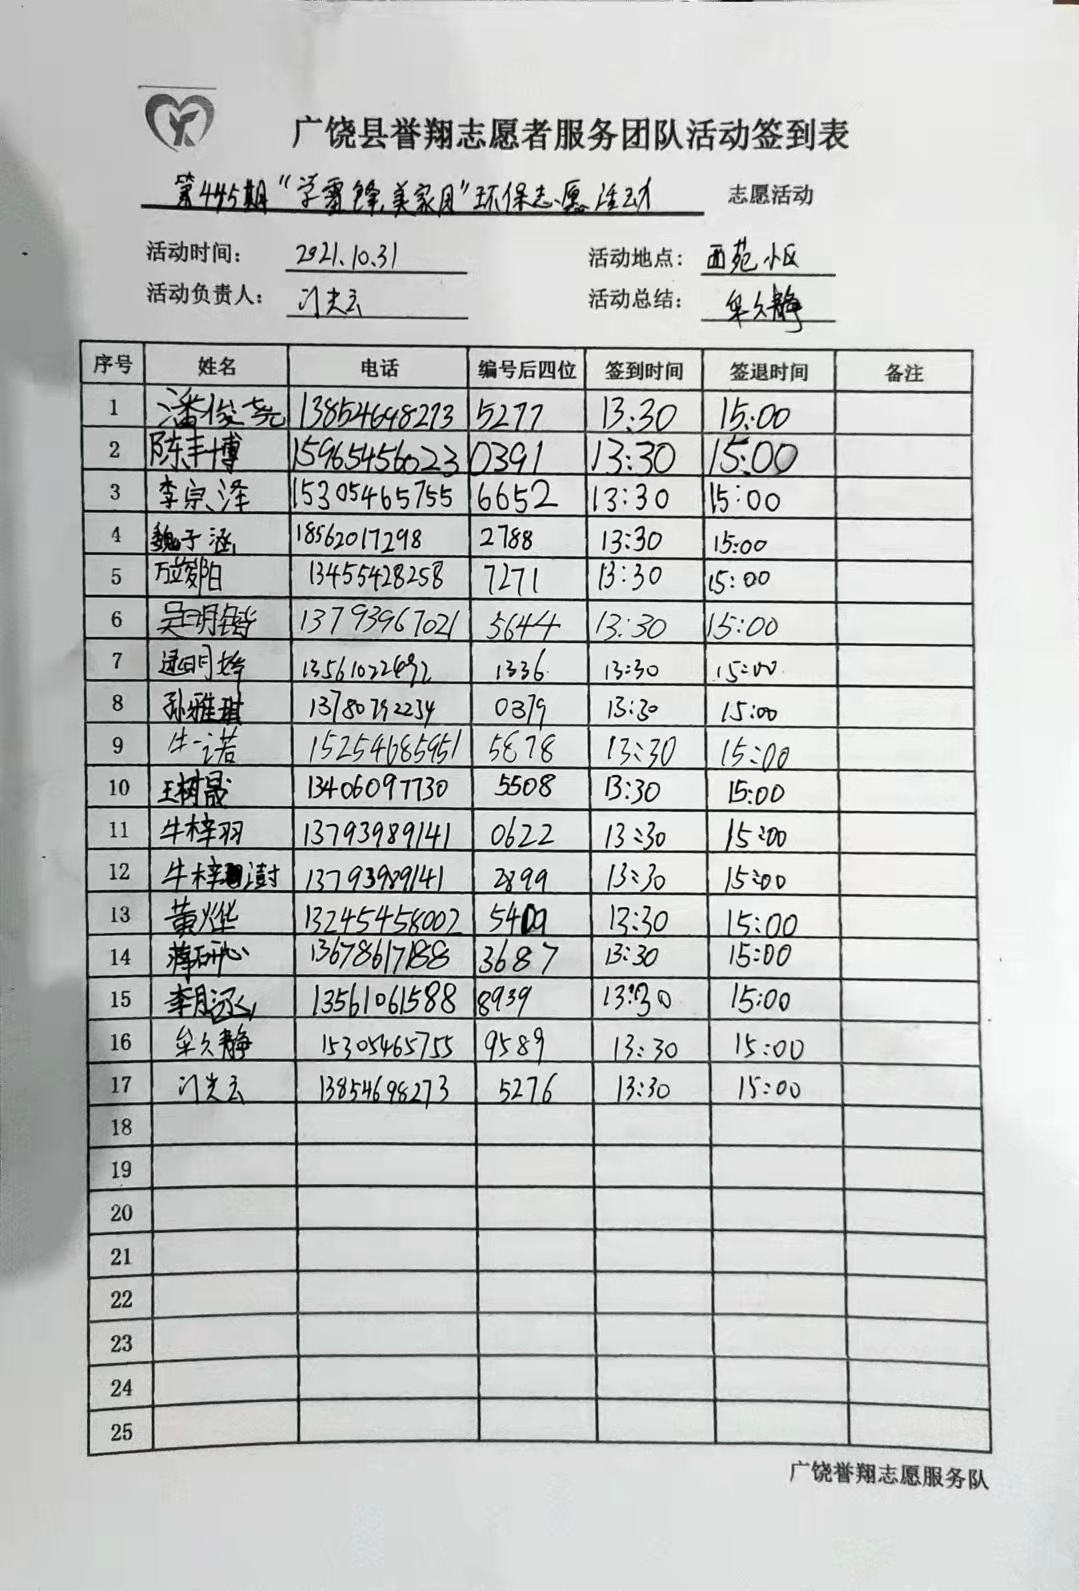 广饶县誉翔志愿者服务团队活动签到表
第445期“学雷锋,美家园”环保志愿活动 志愿活动
活动时间: 2021.10.31 活动地点: 西苑小区
活动负责人: 活动总结: 牟久静
序号 姓名 电话 编号后四位 签到时间 签退时间 备注
1 潘俊 13854698273 5277 13:30 15:00
2 陈丰博 15965456023 0391 13:30 15:00
3 李宗泽 15305465755 6652 13:30 15:00
4 魏子涵 18562017298 2788 13:30 15:00
5 13455428258 7271 13:30 15:00
6 吴明锴 13793967021 5644 13:30 15:00
7 1336 13:30 15:00
8 孙雅琪 13780792234 0379 13:30 15:00
9 牛一诺 15254685951 5878 13:30 15:00
10 王树晟 13406097730 5508 13:30 15:00
11 牛梓羽 13793989141 0622 13:30 15:00
12 牛梓澍 13793989141 2899 13:30 15:00
13 黄烨 13245458002 13:30 15:00
14 蒋研心 13678617188 3687 13:30 15:00
15 13561061588 8939 13:30 15:00
16 牟久静 15305465755 9589 13:30 15:00
17 13854698273 5276 13:30 15:00
18
19
20
21
22
23
24
25
广饶誉翔志愿服务队